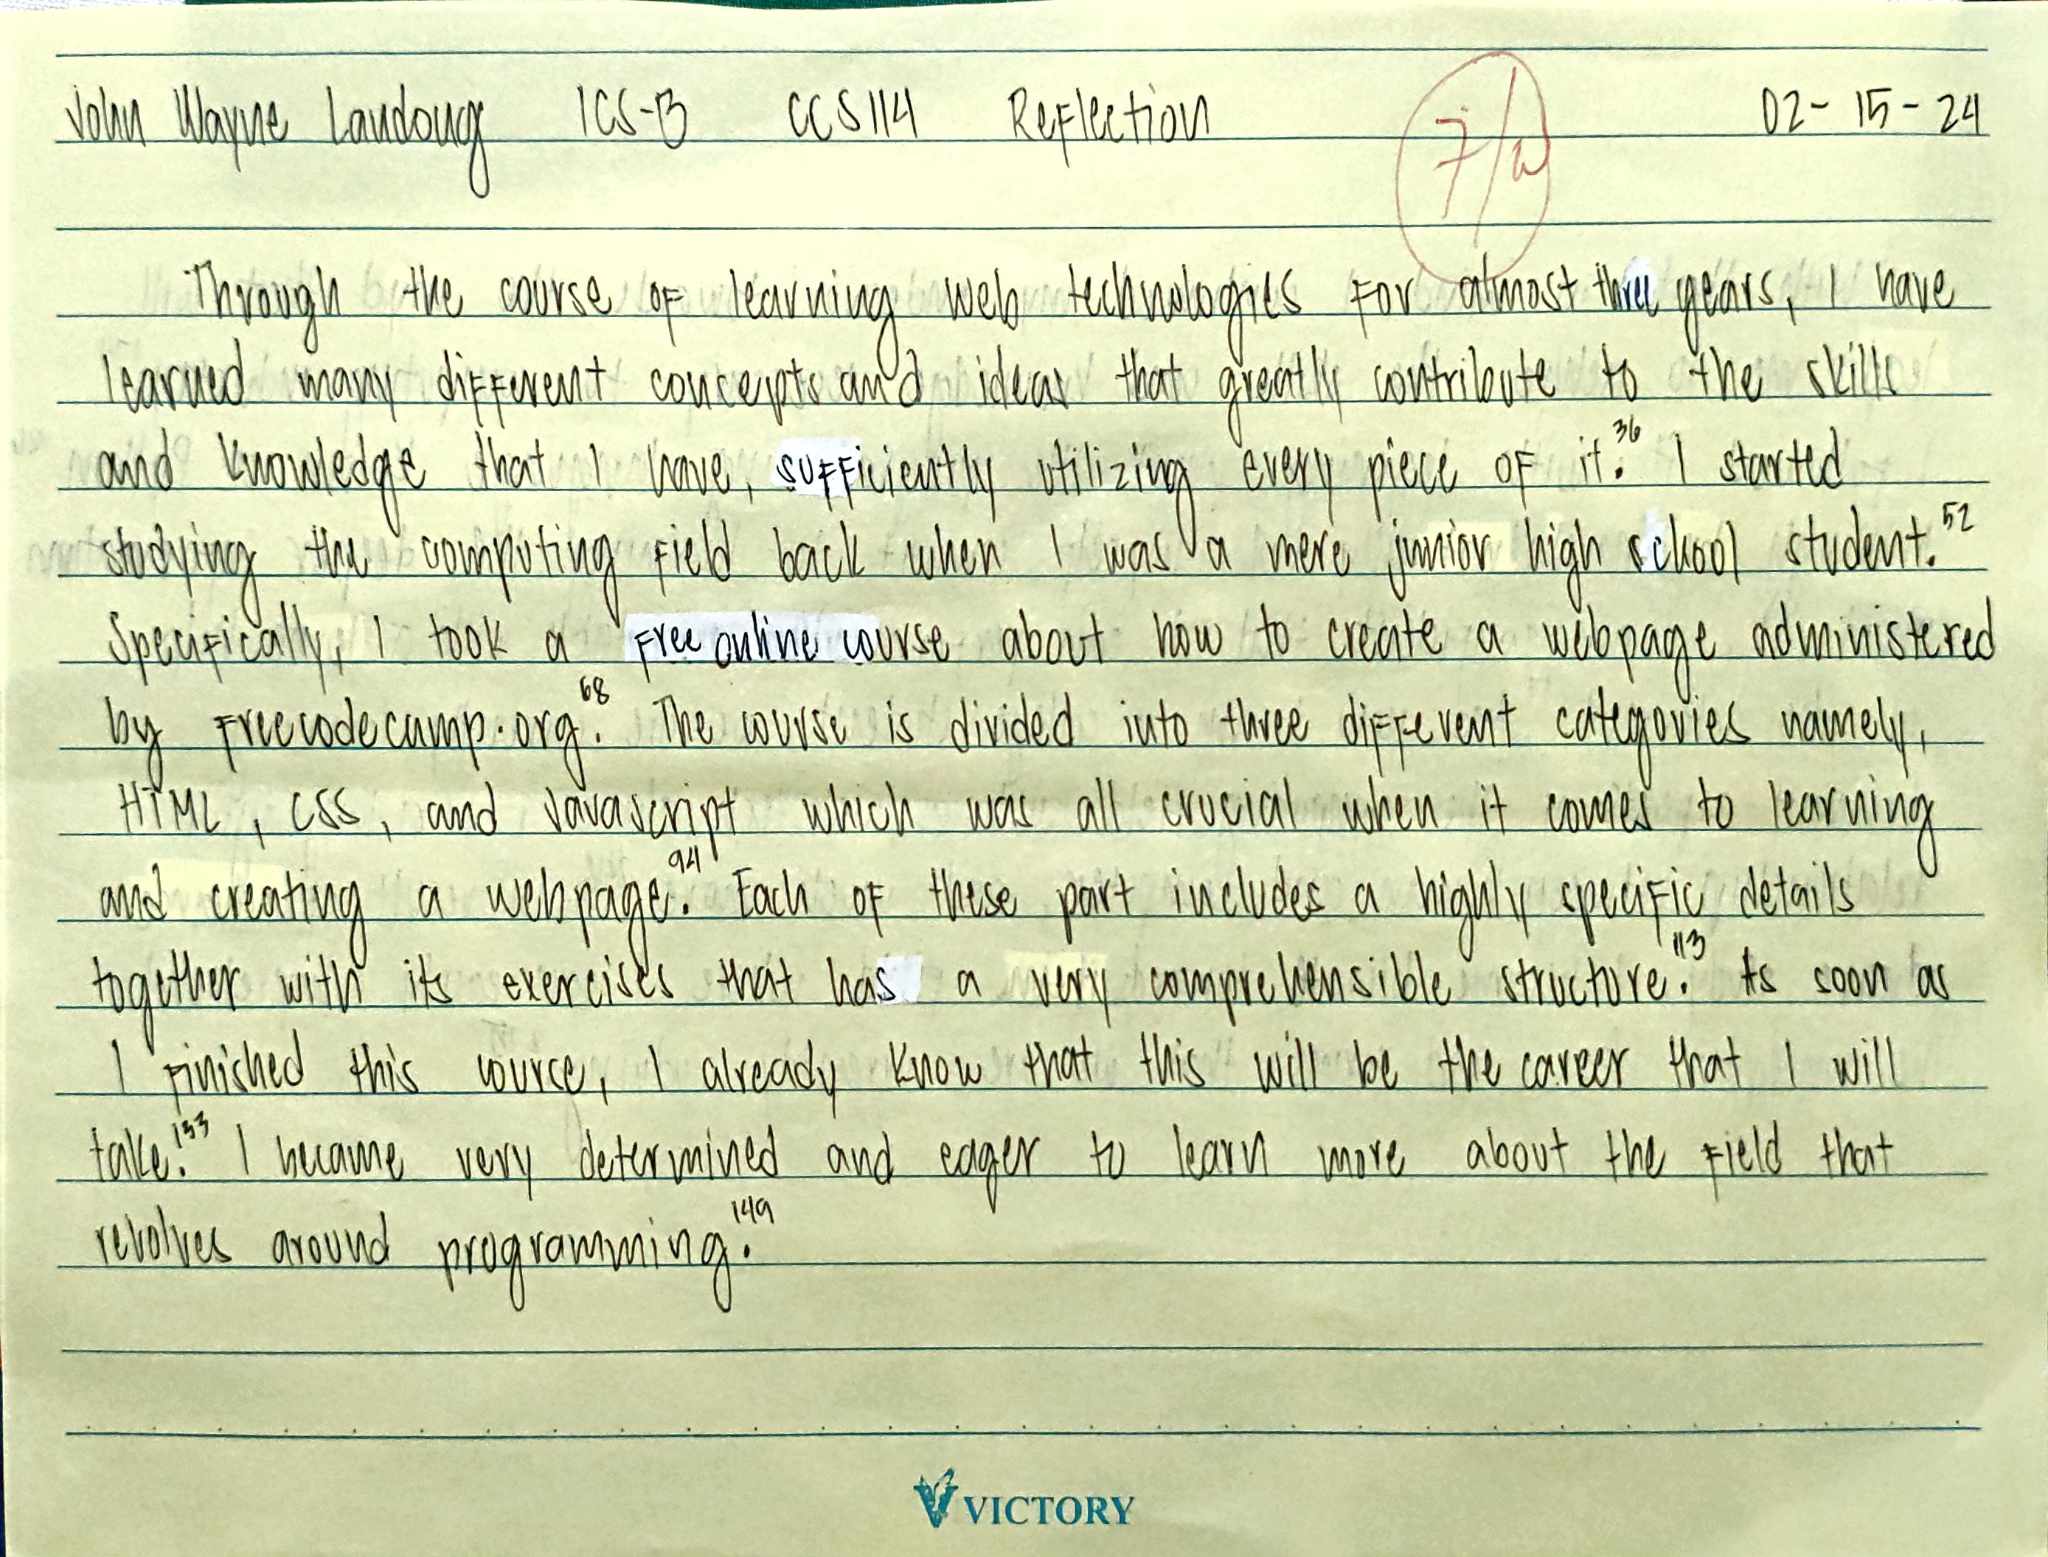 John Wayne Landong 1CS-B CCS114 Reflection 02-15-24
Through the course of learning web technologies for almost three years, I have
learned many different concepts and ideas that greatly contribute to the skills
and knowledge that I have, sufficiently utilizing every piece of it.36 I started
studying the computing field back when I was a mere junior high school student.52
Specifically, I took a free online course about how to create a webpage administered
by freecodecamp.org.68 The course is divided into three different categories namely,
HTML, CSS, and Javascript which was all crucial when it comes to learning
and creating a webpage.94 Each of these part includes a highly specific details
together with its exercises that has a very comprehensible structure.113 As soon as
I finished this course, I already know that this will be the career that I will
take.133 I became very determined and eager to learn more about the field that
revolves around programming.149
VICTORY